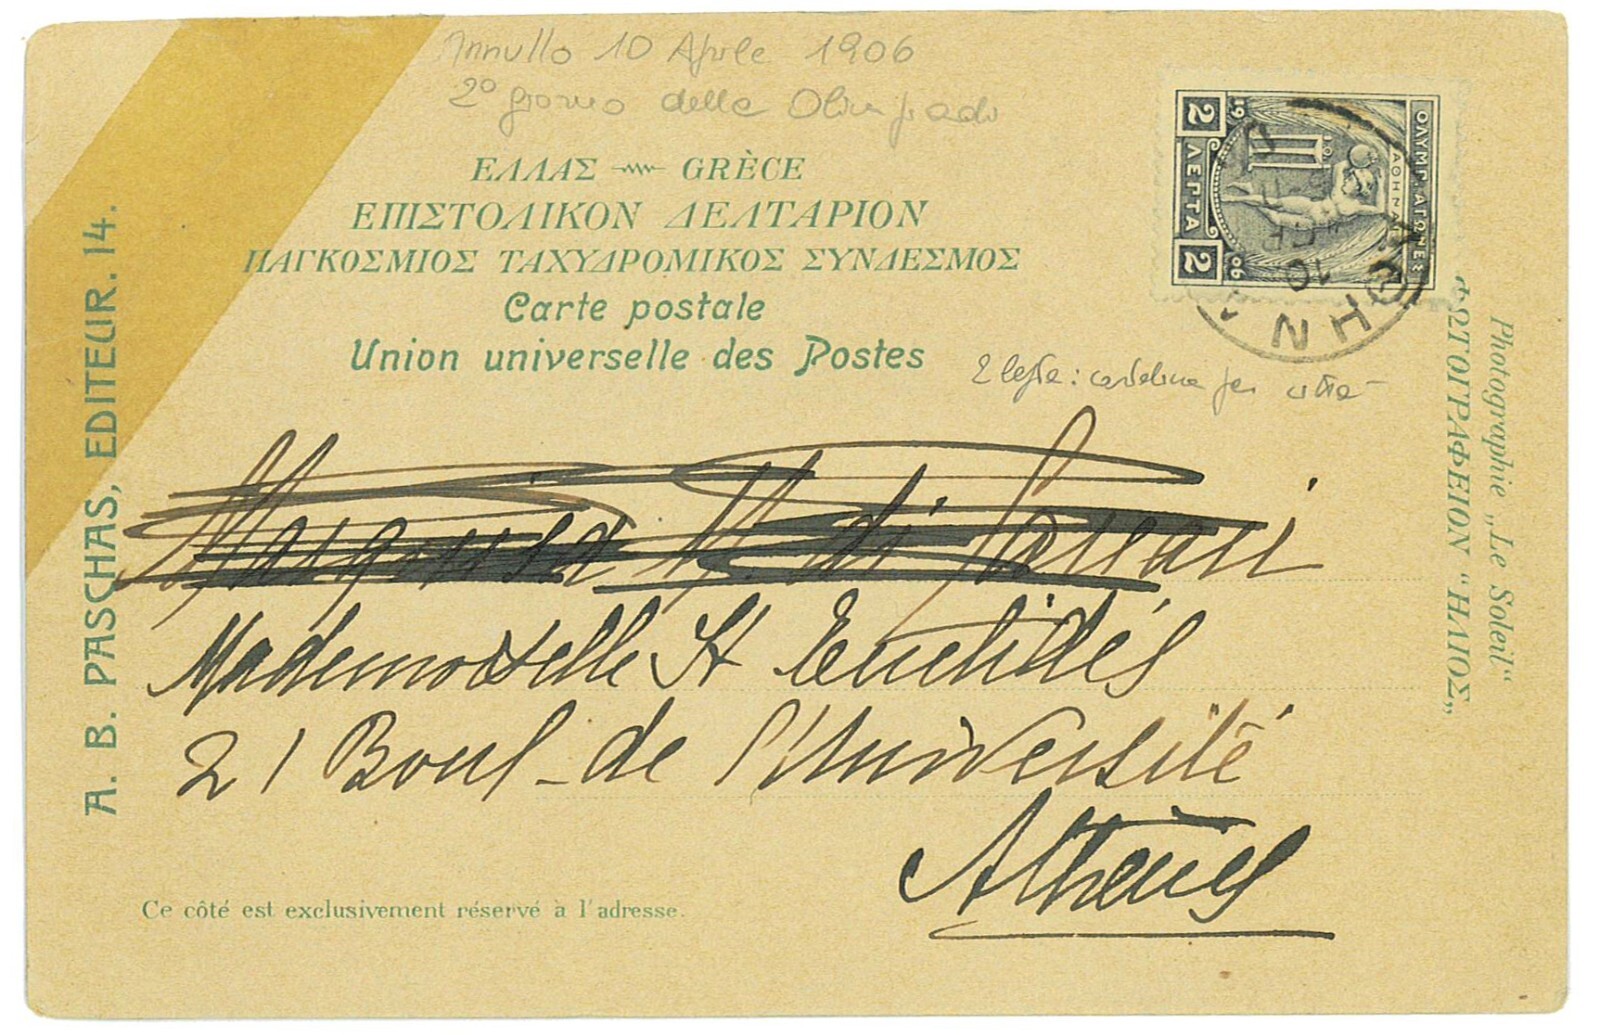 Annullo 10 Aprile 1906
2º giorno delle Olimpiadi
ΕΛΛΑΣ GRÈCE
ΕΠΙΣΤΟΛΙΚΟΝ ΔΕΛΤΑΡΙΟΝ
ΠΑΓΚΟΣΜΙΟΣ ΤΑΧΥΔΡΟΜΙΚΟΣ ΣΥΝΔΕΣΜΟΣ
Carte postale
Union universelle des Postes
ΟΛΥΜΠ. ΑΓΩΝΕΣ
ΑΘΗΝΑΙ
19 06
2 ΛΕΠΤΑ 2
ΑΘΗΝΑΙ
10
2 lepta: cartolina per città
A. B. PASCHAS, EDITEUR. 14.
Photographie „Le Soleil“
ΦΩΤΟΓΡΑΦΕΙΟΝ “ΗΛΙΟΣ„
di
Mademoiselle St Euclidés
21 Boul-de l'Université
Athènes
Ce côté est exclusivement réservé à l'adresse.